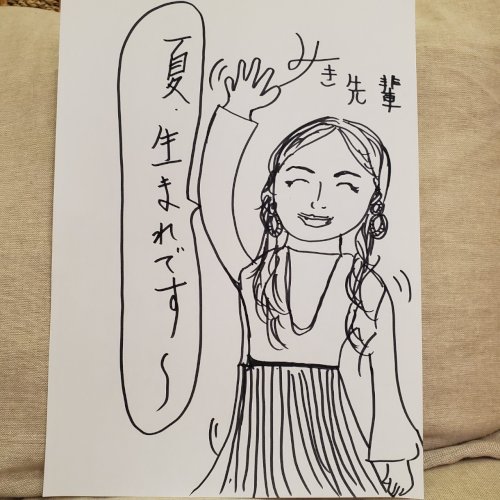 みき先輩
夏生まれです〜